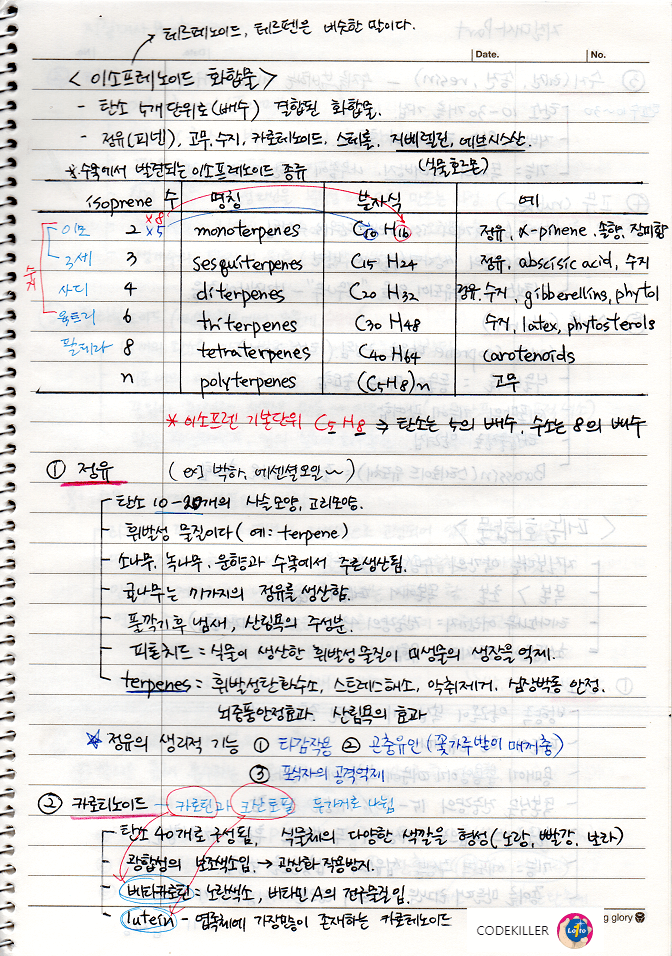 테르페노이드, 테르펜은 비슷한 말이다.
Date. No.
< 이소프레노이드 화합물 >
- 탄소 5개 단위로 (배수) 결합된 화합물.
- 정유(피넨), 고무, 수지, 카로테노이드, 스테롤, 지베렐린, 에브시스산.
(식물호르몬)
* 수목에서 발견되는 이소프레노이드 종류
isoprene 수 명칭 분자식 예
이모 2 x8 x5 monoterpenes C10 H16 정유, α-pinene, 솔향, 장미향
3세 3 sesquiterpenes C15 H24 정유, abscisic acid, 수지
사디 4 diterpenes C20 H32 정유, 수지, gibberellins, phytol
육트리 6 triterpenes C30 H48 수지, latex, phytosterols
팔테라 8 tetraterpenes C40 H64 carotenoids
n polyterpenes (C5H8)n 고무
수지
* 이소프렌 기본단위 C5 H8 → 탄소는 5의 배수, 수소는 8의 배수
① 정유 (ex] 박하, 에센셜오일~)
탄소 10-20개의 사슬모양, 고리모양.
- 휘발성 물질이다 (예: terpene)
- 소나무, 녹나무, 운향과 수목에서 주로생산됨.
- 귤나무는 71가지의 정유를 생산함.
- 풀깎기 후 냄새, 산림욕의 주성분.
- 피톤치드 = 식물이 생산한 휘발성물질이 미생물의 생장을 억제.
terpenes = 휘발성탄화수소, 스트레스해소, 악취제거. 심장박동 안정.
뇌졸풍안정효과. 산림욕의 효과
* 정유의 생리적 기능 ① 타감작용 ② 곤충유인 (꽃가루받이 매개충)
③ 포식자의 공격억제
② 카로티노이드 - 카로틴과 크산토필 두가지로 나뉨
탄소 40개로 구성됨, 식물체의 다양한 색깔을 형성 (노랑, 빨강, 보라)
- 광합성의 보조색소임. → 광산화 작용방지.
- 베타카로틴 = 노란색소, 비타민 A의 전구물질임.
- lutein - 엽록체에 가장많이 존재하는 카로테노이드
CODEKILLER Lotto g glory